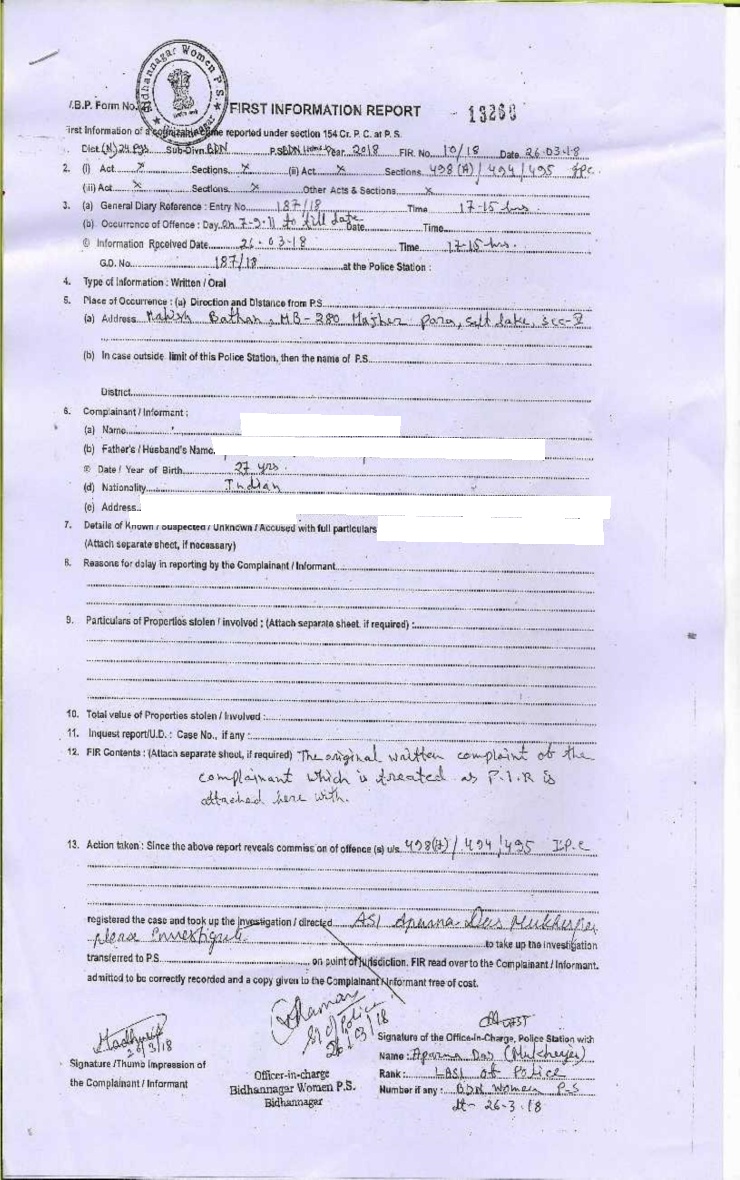 Bidhannagar Women P.S.
I.B.P. Form No. 27
FIRST INFORMATION REPORT - 13260
First Information of a cognizable crime reported under section 154 Cr. P. C. at P. S.
1. Dist. (N) 24 Pgs. Sub-Divn. BDN P.S. BDN Women Year 2018 FIR. No. 10/18 Date 26-03-18
2. (i) Act X Sections X (ii) Act X Sections 498(A)/494/495 IPC.
(iii) Act X Sections X Other Acts & Sections X
3. (a) General Diary Reference : Entry No. 187/18 Time 17-15 hrs.
(b) Occurrence of Offence : Day On 7-9-11 to till date Date Time
© Information Received Date 26-03-18 Time 17-15 hrs.
G.D. No. 187/18 at the Police Station :
4. Type of Information : Written / Oral
5. Place of Occurrence : (a) Direction and Distance from P.S.
(a) Address Mahish Bathan, MB-280 Majher para, Salt lake, Sec-V
(b) In case outside limit of this Police Station, then the name of P.S.
District
6. Complainant / Informant :
(a) Name
(b) Father's / Husband's Name
© Date / Year of Birth 27 yrs.
(d) Nationality Indian
(e) Address
7. Details of Known / Suspected / Unknown / Accused with full particulars
(Attach separate sheet, if necessary)
8. Reasons for delay in reporting by the Complainant / Informant
9. Particulars of Properties stolen / involved ; (Attach separate sheet, if required) :
10. Total value of Properties stolen / Involved :
11. Inquest report/U.D. : Case No., if any :
12. FIR Contents : (Attach separate sheet, if required) The original written complaint of the
complainant which is treated as F.I.R is
attached here with.
13. Action taken : Since the above report reveals commission of offence (s) u/s. 498(A)/494/495 I.P.C
registered the case and took up the investigation / directed ASI Aparna Das Mukherjee
please investigate to take up the investigation
transferred to P.S. on point of jurisdiction. FIR read over to the Complainant / Informant.
admitted to be correctly recorded and a copy given to the Complainant / Informant free of cost.
SI of Police
26/03/18
26/3/18
Signature of the Office-in-Charge, Police Station with
Signature /Thumb impression of
the Complainant / Informant
Officer-in-charge
Bidhannagar Women P.S.
Bidhannagar
Name : Aparna Das (Mukherjee)
Rank : LASI of Police
Number if any : BDN Women P-S
dt- 26-3-18